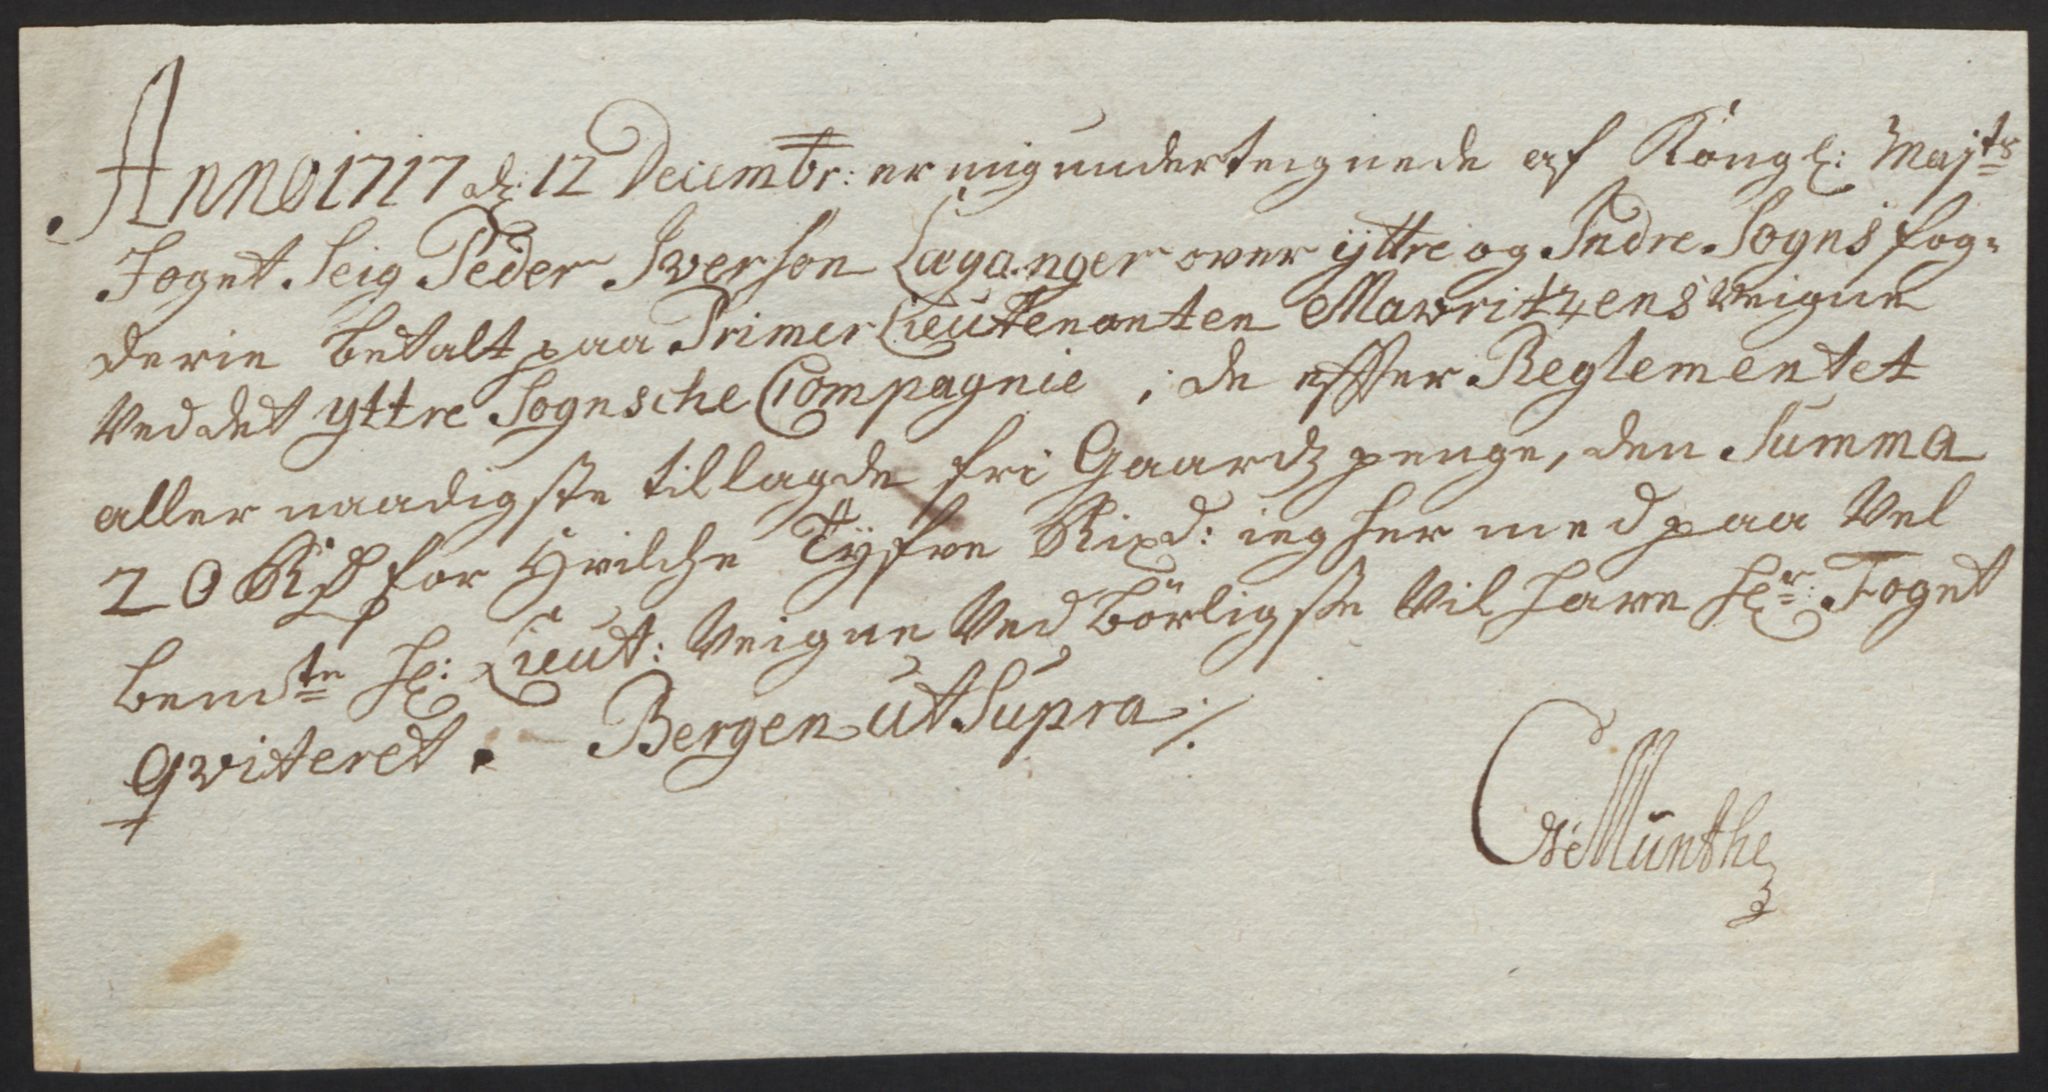 Anno 1717 d: 12 Decembr: er mig underteignede af Köngl: Majts
Foget Seig Peder Iverson Læganger over ÿttre og Indre Sogns fog=
derie betalt paa Primer Lieutenanten Mawritzens Veigne
Ved det ÿttre Sognsche Compagnie, de effter Reglementet
aller naadigste tillagde fri Gaardz penge, den Summa
20 Rd for Hvilche Tÿfve Rixd: ieg her med paa Vel
bemte H: Lieut: Veigne Ved börligste Vil have Hr: Foget
qviteret. Bergen ut Supra ./.
Münthe